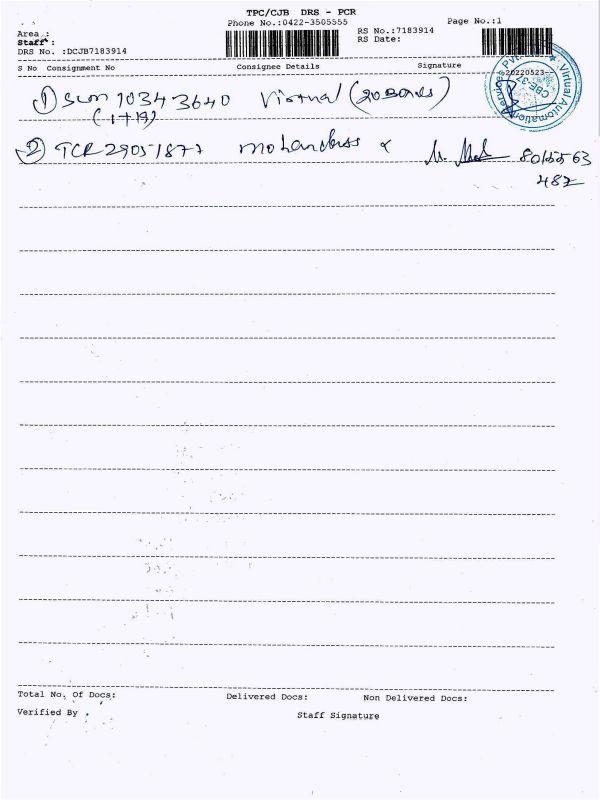 TPC/CJB DRS - PCR
Phone No.:0422-3505555
Page No.:1
Area :
RS No.:7183914
Staff :
RS Date:
DRS No. :DCJB7183914
S No Consignment No Consignee Details Signature
20220523
Virtual Automation Services Pvt.
CBE-37
① 10343640 Virtual (20 Boxes)
(1+19)
② TCR29051877
8015563
487
Total No. Of Docs: Delivered Docs: Non Delivered Docs:
Verified By
Staff Signature